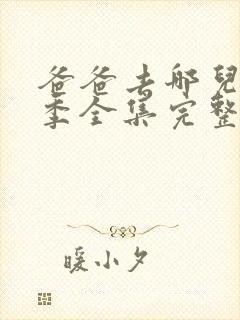 爸爸去哪兒
季全集完整
暖小夕